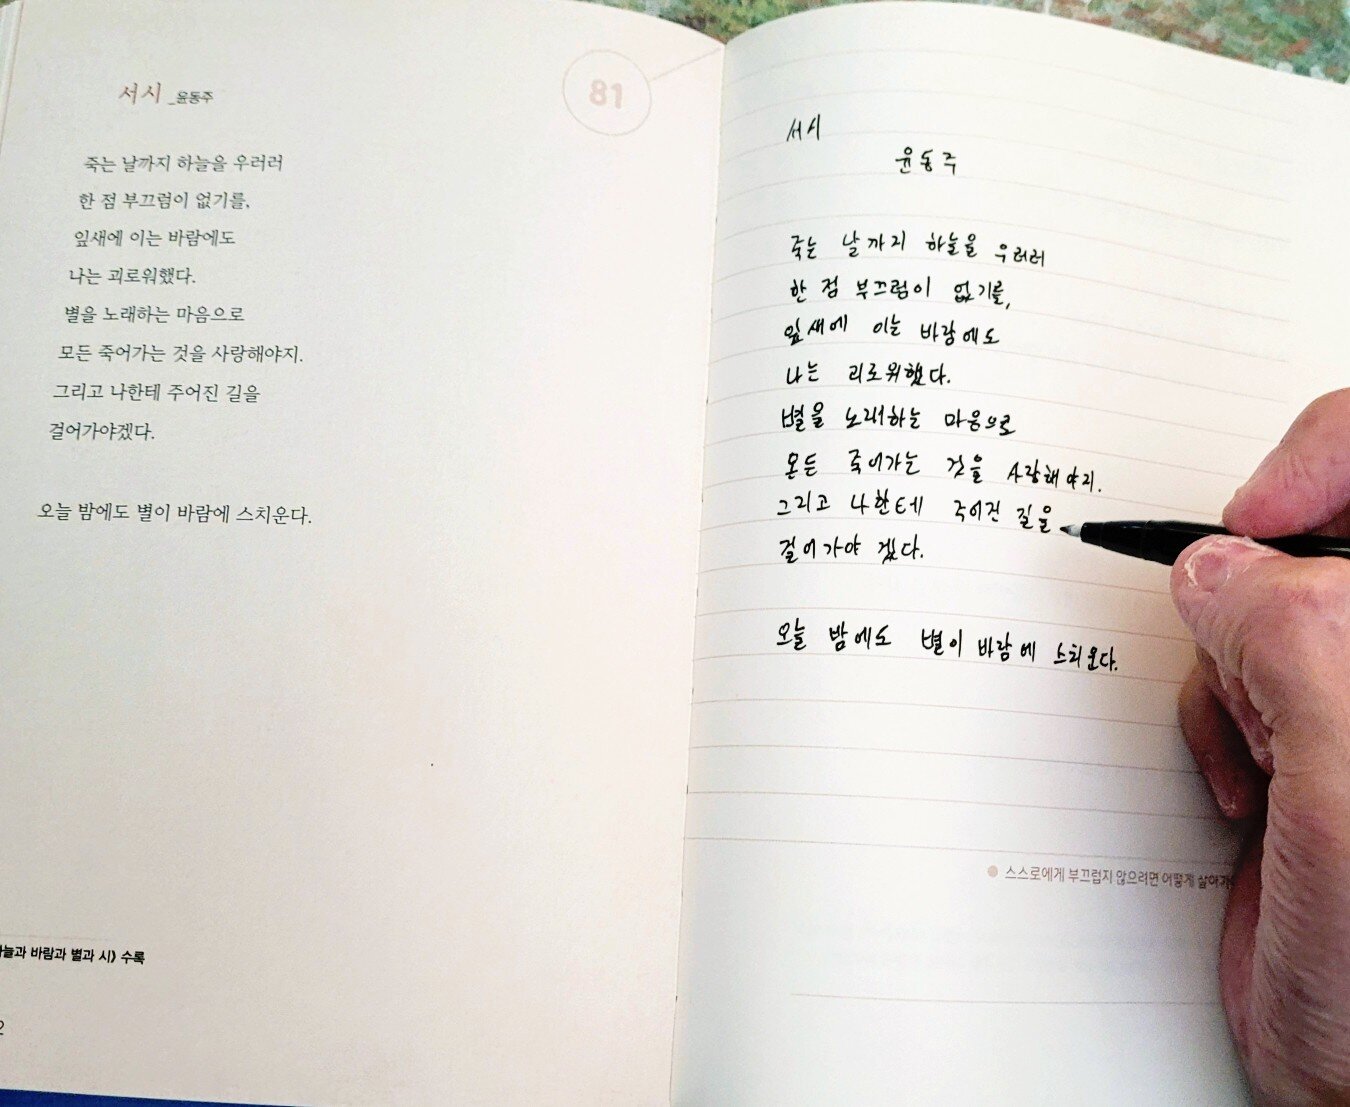 서시 _윤동주
81
죽는 날까지 하늘을 우러러
한 점 부끄럼이 없기를,
잎새에 이는 바람에도
나는 괴로워했다.
별을 노래하는 마음으로
모든 죽어가는 것을 사랑해야지.
그리고 나한테 주어진 길을
걸어가야겠다.
오늘 밤에도 별이 바람에 스치운다.
바람과 별과 시》 수록
2
서시
윤동주
죽는 날까지 하늘을 우러러
한 점 부끄럼이 없기를,
잎새에 이는 바람에도
나는 괴로워했다.
별을 노래하는 마음으로
모든 죽어가는 것을 사랑해야지.
그리고 나한테 주어진 길을
걸어가야 겠다.
오늘 밤에도 별이 바람에 스치운다.
스스로에게 부끄럽지 않으려면 어떻게